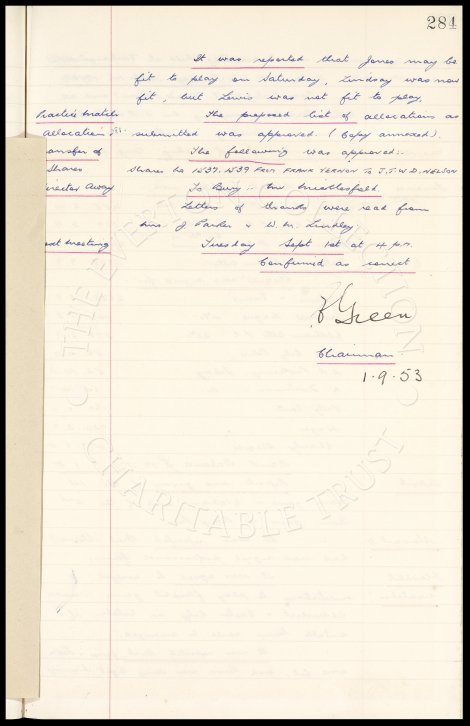 284
It was reported that Jones may be
fit to play on Saturday, Lindsay was now
fit, but Lewis was not fit to play.
Practice Matches The proposed list of allocations as
allocation submitted was approved. (Copy annexed).
ansfer of The following was approved:-
Shares Shares No 1537. 1539 FROM FRANK VERNON TO T.W.D. NELSON
irector Away To Bury :- Mr Micklesfield.
Letters of thanks were read from
Mrs. J Parker & W. M. Lindley.
ext meeting Tuesday Sept 1st at 4 p.m.
Confirmed as correct
Green
Chairman
1.9.53
THE EVERTON COLLECTION
CHARITABLE TRUST